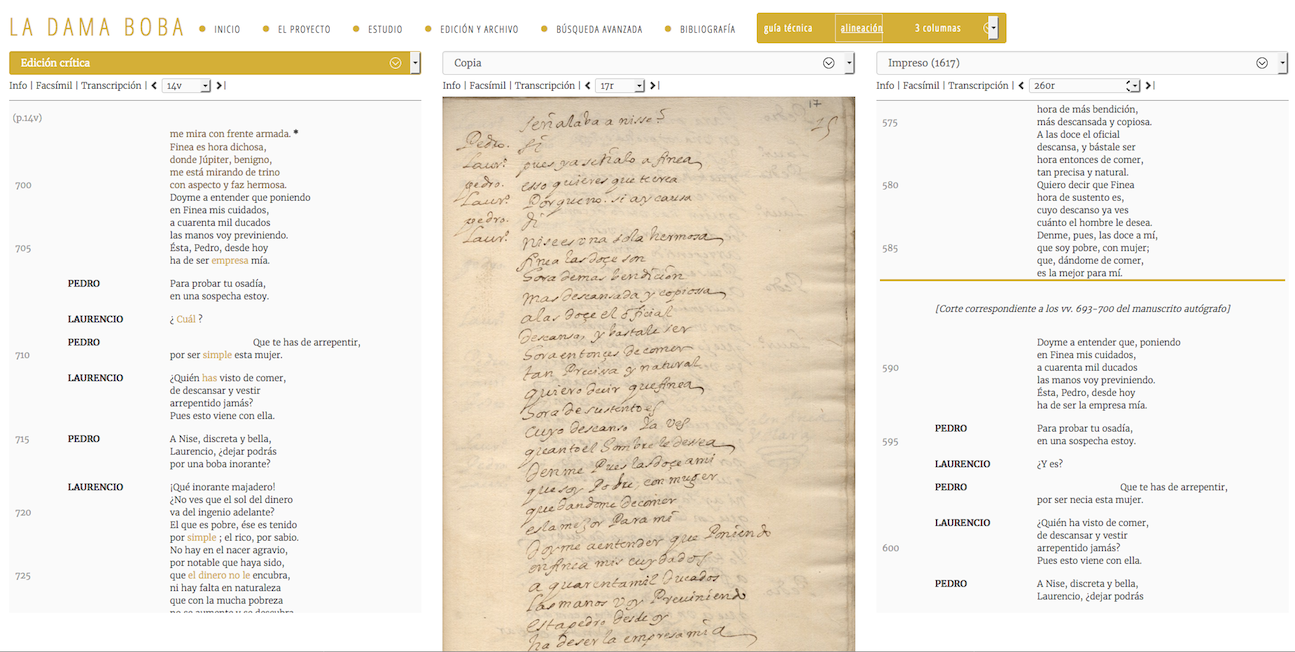 LA DAMA BOBA
INICIO
EL PROYECTO
ESTUDIO
EDICIÓN Y ARCHIVO
BÚSQUEDA AVANZADA
BIBLIOGRAFÍA
guía técnica
alineación
3 columnas
Edición crítica
Info | Facsímil | Transcripción | 14v
(p.14v)
me mira con frente armada. *
Finea es hora dichosa,
donde Júpiter, benigno,
me está mirando de trino
700 con aspecto y faz hermosa.
Doyme a entender que poniendo
en Finea mis cuidados,
a cuarenta mil ducados
las manos voy previniendo.
705 Ésta, Pedro, desde hoy
ha de ser empresa mía.
PEDRO Para probar tu osadía,
en una sospecha estoy.
LAURENCIO ¿ Cuál ?
PEDRO Que te has de arrepentir,
710 por ser simple esta mujer.
LAURENCIO ¿Quién has visto de comer,
de descansar y vestir
arrepentido jamás?
Pues esto viene con ella.
715 PEDRO A Nise, discreta y bella,
Laurencio, ¿dejar podrás
por una boba inorante?
LAURENCIO ¡Qué inorante majadero!
¿No ves que el sol del dinero
720 va del ingenio adelante?
El que es pobre, ése es tenido
por simple ; el rico, por sabio.
No hay en el nacer agravio,
por notable que haya sido,
725 que el dinero no le encubra,
ni hay falta en naturaleza
que con la mucha pobreza
no se aumente y se descubra
Copia
Info | Facsímil | Transcripción | 17r
17
señalaba a nisse?
Pedro. si
Laurº. pues ya señalo a finea
pedro. esso quieres que te crea
Laurº. Por que no. si ay causa
pedro. di
Laurº. nise es una sola hermosa
finea las doçe son
ora de mas bendiçion
mas descansada y copiossa
a las doçe el ofiçial
descansa, y bastale ser
ora entonçes de comer
tan Preçisa y natural
quiero deçir que finea
ora de sustento es
cuyo descanso Ya ves
quanto el ombre le dessea
Denme Pues las doçe a mi
que soy Pobre, con muger
que dandome de comer
es la mejor Para mi
Doyme a entender que Poniendo
en finea mis cuydados
a quarenta mil Ducados
las manos voy Previniendo
esta pedro desde oy
ha de ser la empresa mia
Impreso (1617)
Info | Facsímil | Transcripción | 26or
hora de más bendición,
575 más descansada y copiosa.
A las doce el oficial
descansa, y bástale ser
hora entonces de comer,
tan precisa y natural.
580 Quiero decir que Finea
hora de sustento es,
cuyo descanso ya ves
cuánto el hombre le desea.
Denme, pues, las doce a mí,
585 que soy pobre, con mujer;
que, dándome de comer,
es la mejor para mí.
[Corte correspondiente a los vv. 693-700 del manuscrito autógrafo]
Doyme a entender que, poniendo
en Finea mis cuidados,
590 a cuarenta mil ducados
las manos voy previniendo.
Ésta, Pedro, desde hoy
ha de ser la empresa mía.
PEDRO Para probar tu osadía,
595 en una sospecha estoy.
LAURENCIO ¿Y es?
PEDRO Que te has de arrepentir,
por ser necia esta mujer.
LAURENCIO ¿Quién ha visto de comer,
de descansar y vestir
600 arrepentido jamás?
Pues esto viene con ella.
PEDRO A Nise, discreta y bella,
Laurencio, ¿dejar podrás